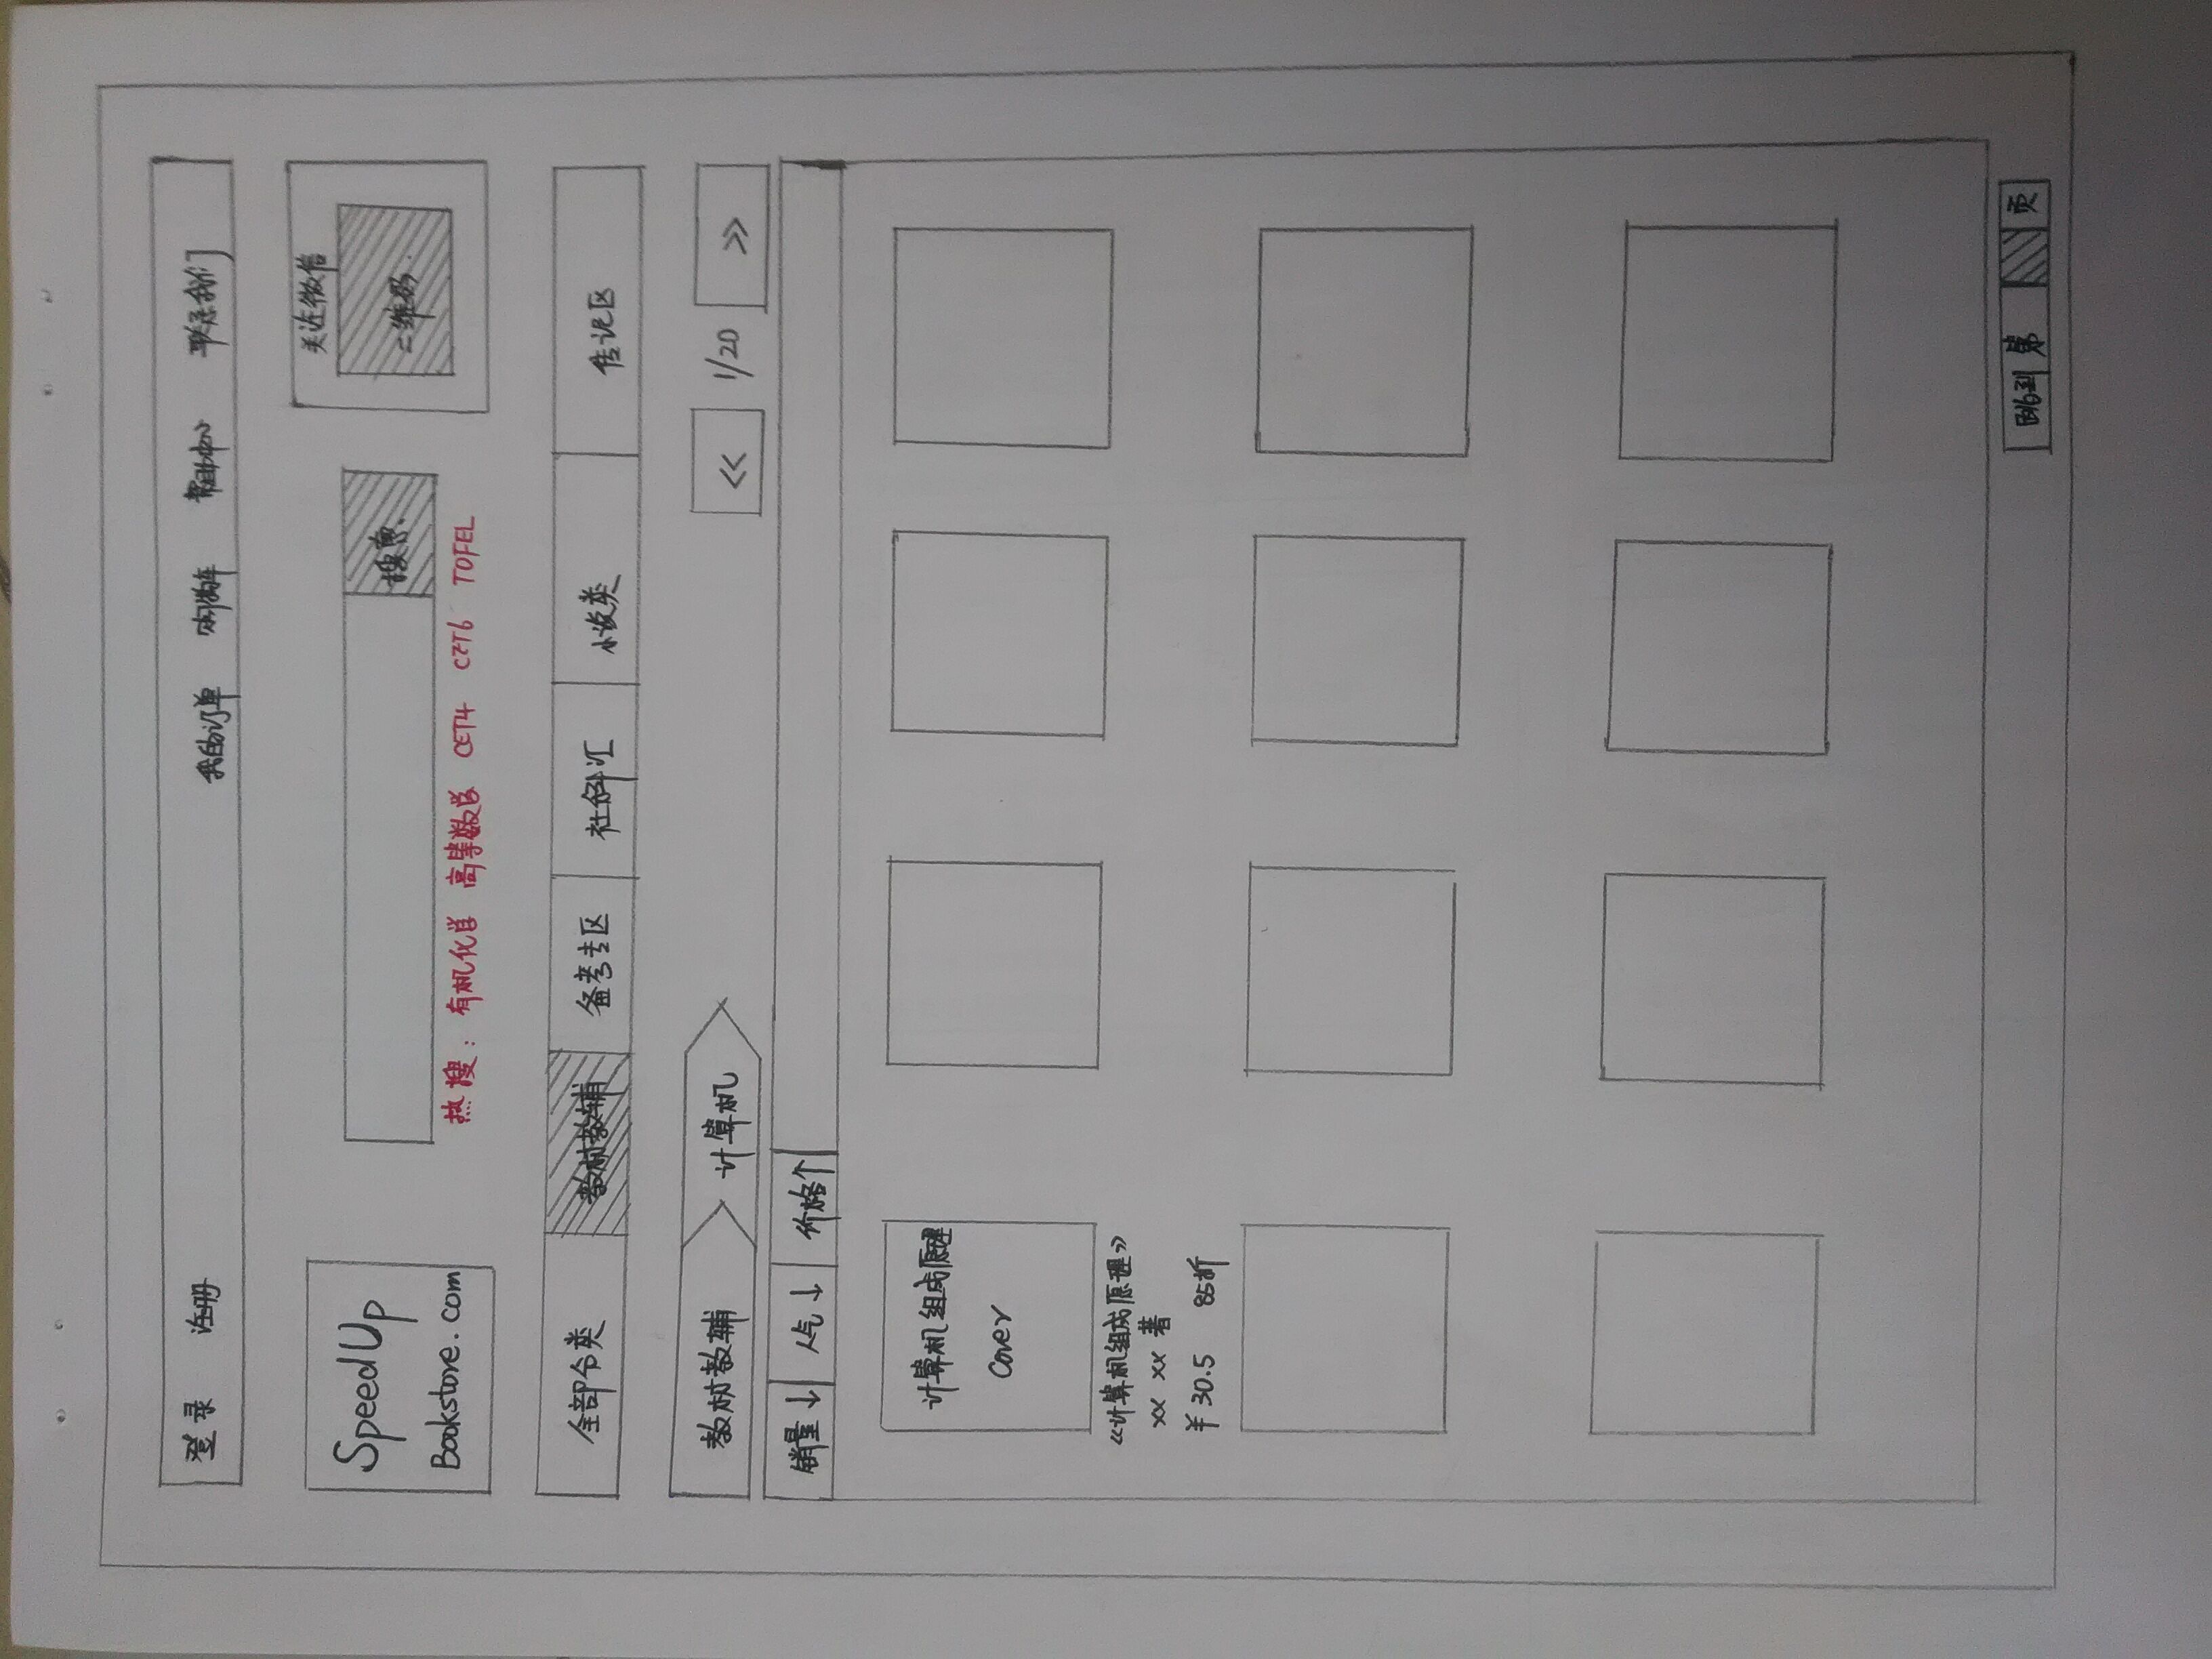 登录 注册 我的订单 购物车 帮助中心 联系我们
SpeedUp
Bookstore.com
搜索
关注微信
二维码
热搜: 有机化学 高等数学 CET4 CET6 TOFEL
全部分类 教材教辅 备考专区 社科汇 小说类 传记区
教材教辅 计算机 << 1/20 >>
销量↓ 人气↓ 价格个
计算机组成原理
Cover
《计算机组成原理》
xx xx 著
¥30.5 85折
跳到 第 页